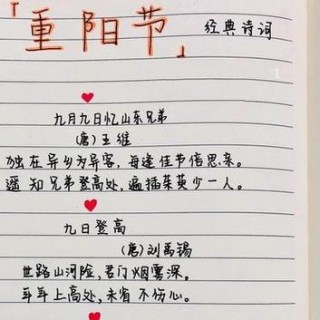 「重阳节」
经典诗词
九月九日忆山东兄弟
(唐)王维
独在异乡为异客，每逢佳节倍思亲。
遥知兄弟登高处，遍插茱萸少一人。
九日登高
(唐)刘禹锡
世路山河险，君门烟雾深。
年年上高处，未省不伤心。